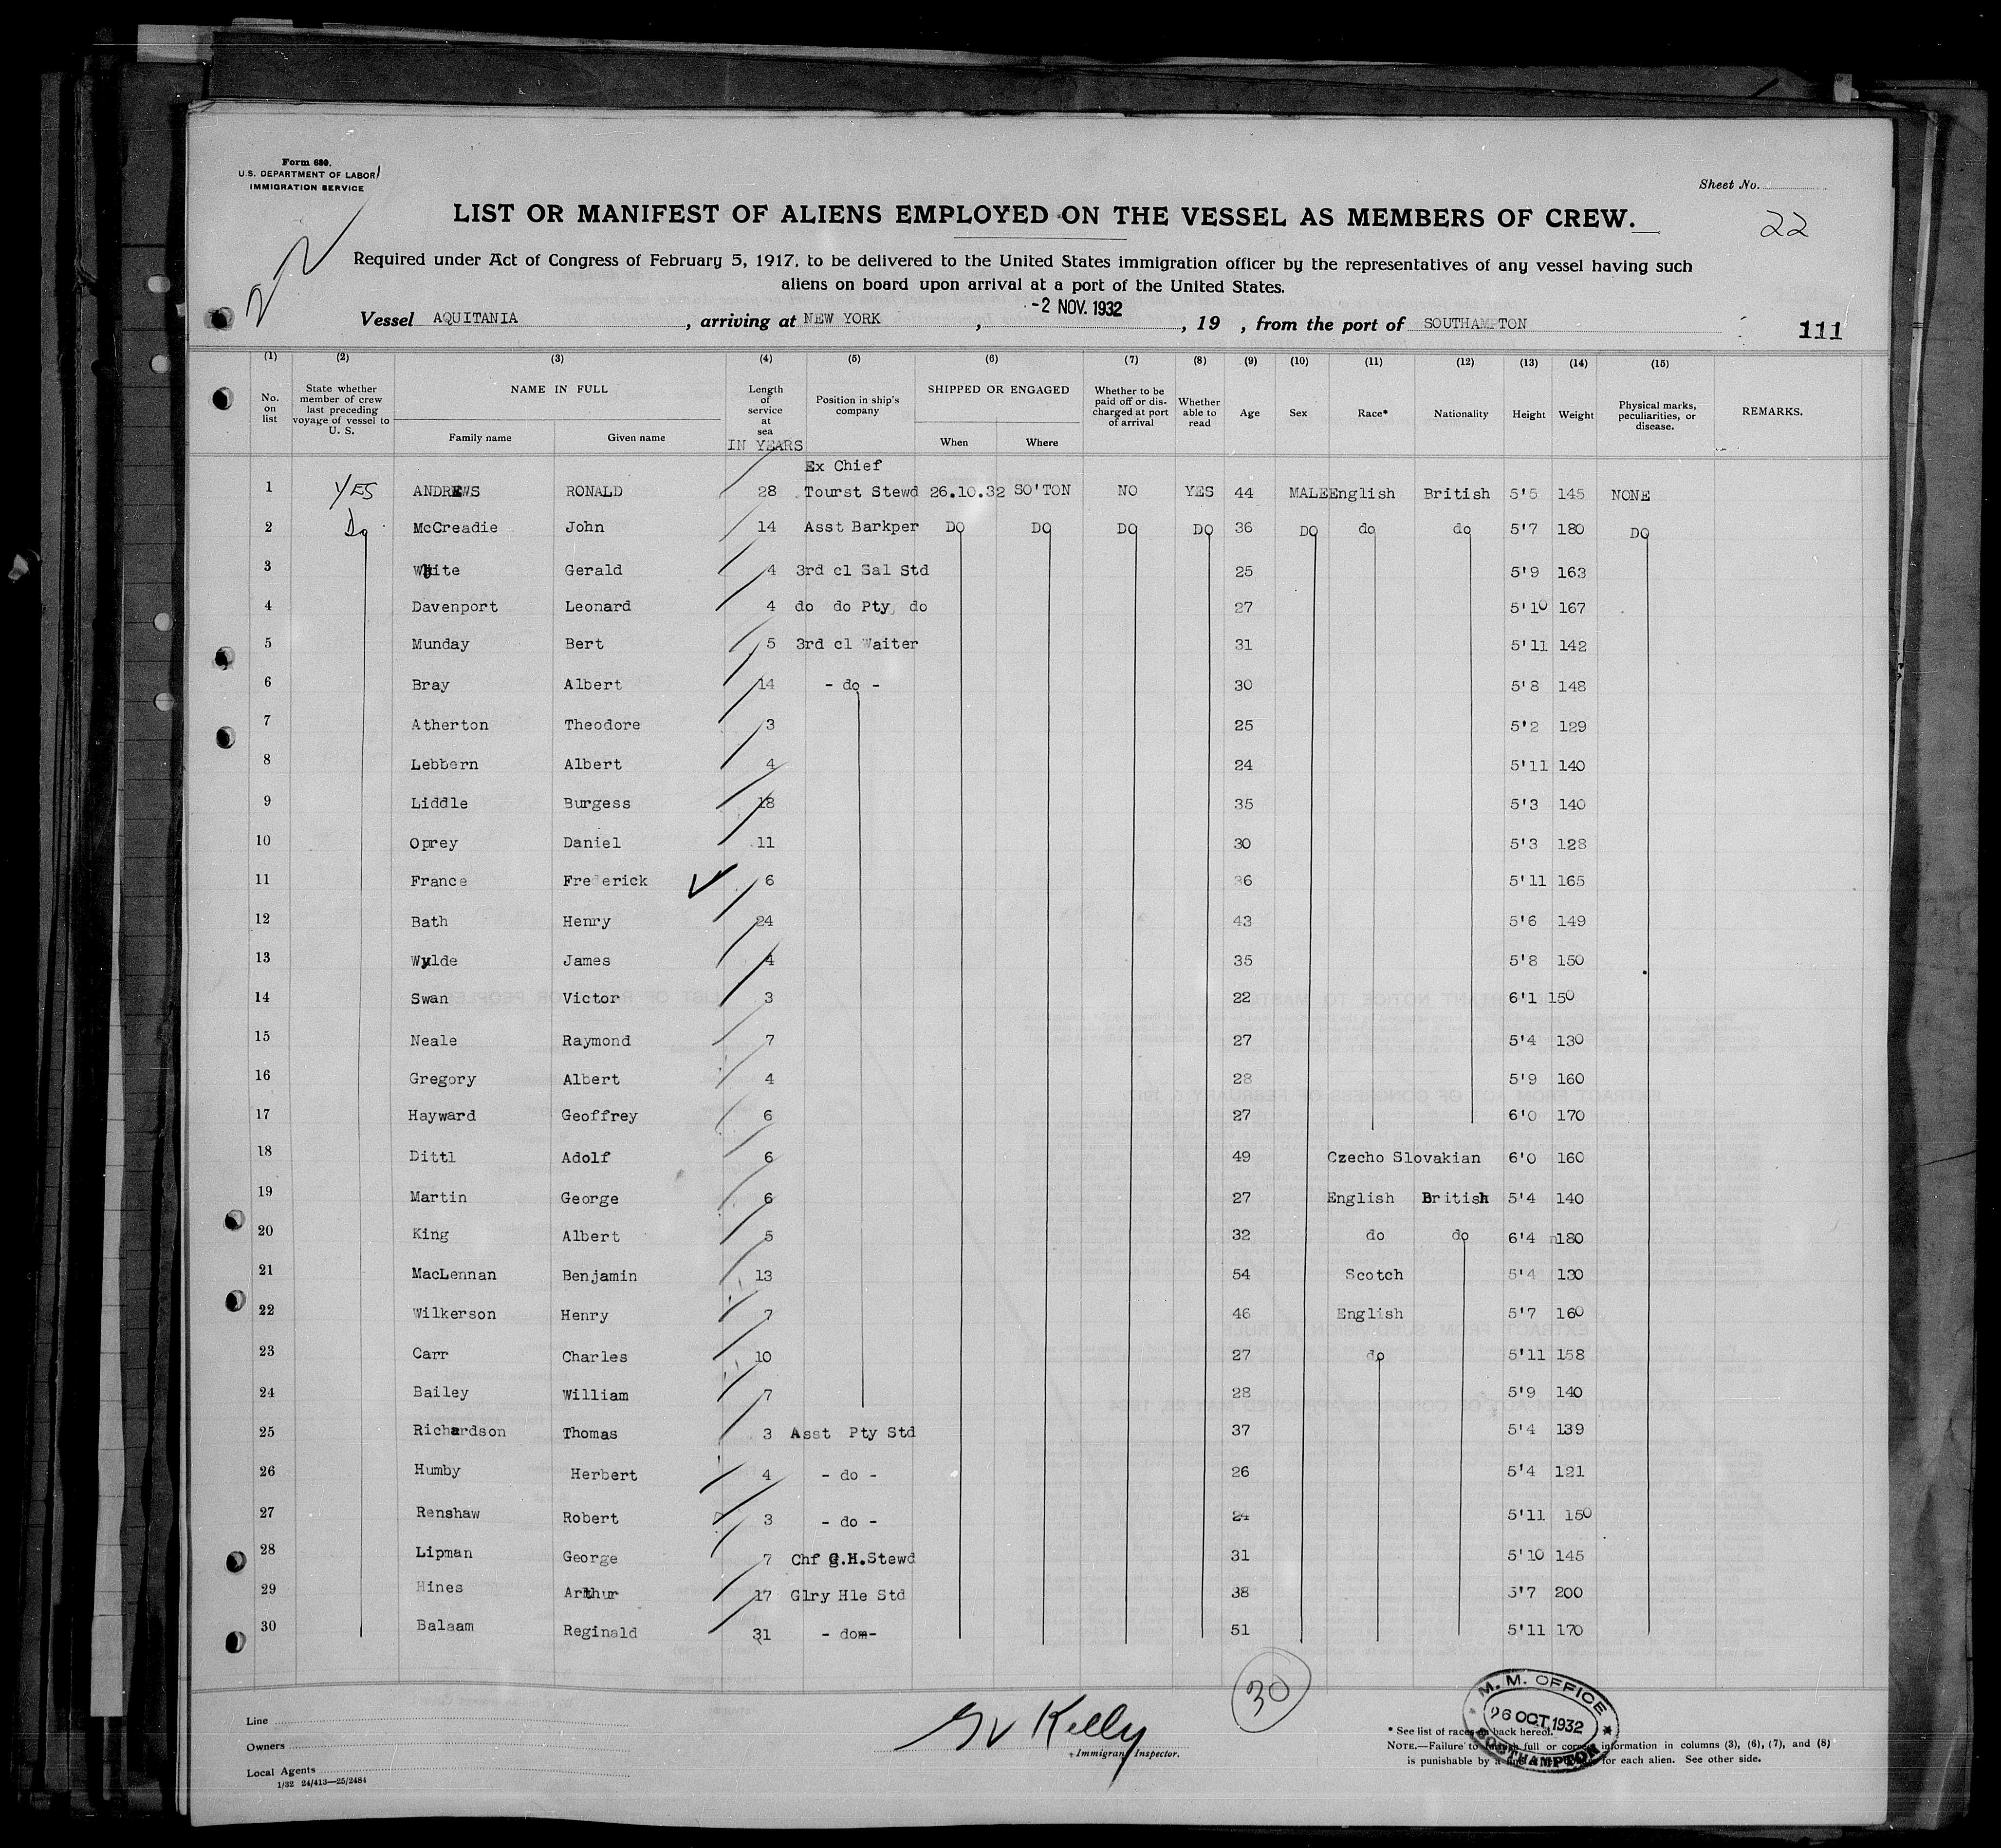 Form 680.
U.S. DEPARTMENT OF LABOR
IMMIGRATION SERVICE
Sheet No.
LIST OR MANIFEST OF ALIENS EMPLOYED ON THE VESSEL AS MEMBERS OF CREW.
22
Required under Act of Congress of February 5, 1917, to be delivered to the United States immigration officer by the representatives of any vessel having such
aliens on board upon arrival at a port of the United States.
Vessel AQUITANIA, arriving at NEW YORK, -2 NOV. 1932, 19 , from the port of SOUTHAMPTON
111
(1) (2) (3) (4) (5) (6) (7) (8) (9) (10) (11) (12) (13) (14) (15)
No. on list
State whether member of crew last preceding voyage of vessel to U. S.
NAME IN FULL
Family name Given name
Length of service at sea
IN YEARS
Position in ship's company
SHIPPED OR ENGAGED
When Where
Whether to be paid off or discharged at port of arrival
Whether able to read
Age Sex Race* Nationality Height Weight
Physical marks, peculiarities, or disease.
REMARKS.
Ex Chief
1 YES ANDREWS RONALD 28 Tourst Stewd 26.10.32 SO'TON NO YES 44 MALE English British 5'5 145 NONE
2 Do McCreadie John 14 Asst Barkper DO DO DO DO 36 DO do do 5'7 180 DO
3 White Gerald 4 3rd cl Sal Std 25 5'9 163
4 Davenport Leonard 4 do do Pty do 27 5'10 167
5 Munday Bert 5 3rd cl Waiter 31 5'11 142
6 Bray Albert 14 - do - 30 5'8 148
7 Atherton Theodore 3 25 5'2 129
8 Lebbern Albert 4 24 5'11 140
9 Liddle Burgess 18 35 5'3 140
10 Oprey Daniel 11 30 5'3 128
11 France Frederick 6 36 5'11 165
12 Bath Henry 24 43 5'6 149
13 Wylde James 4 35 5'8 150
14 Swan Victor 3 22 6'1 150
15 Neale Raymond 7 27 5'4 130
16 Gregory Albert 4 28 5'9 160
17 Hayward Geoffrey 6 27 6'0 170
18 Dittl Adolf 6 49 Czecho Slovakian 6'0 160
19 Martin George 6 27 English British 5'4 140
20 King Albert 5 32 do do 6'4 180
21 MacLennan Benjamin 13 54 Scotch 5'4 130
22 Wilkerson Henry 7 46 English 5'7 160
23 Carr Charles 10 27 do 5'11 158
24 Bailey William 7 28 5'9 140
25 Richardson Thomas 3 Asst Pty Std 37 5'4 139
26 Humby Herbert 4 - do - 26 5'4 121
27 Renshaw Robert 3 - do - 24 5'11 150
28 Lipman George 7 Chf G.H.Stewd 31 5'10 145
29 Hines Arthur 17 Glry Hle Std 38 5'7 200
30 Balaam Reginald 31 - dom- 51 5'11 170
30
Line
Owners
Local Agents
1/32 24/413—25/2484
Kelly
Immigrant Inspector.
M. M. OFFICE
26 OCT. 1932
SOUTHAMPTON
* See list of races on back hereof.
NOTE.—Failure to full or correct information in columns (3), (6), (7), and (8)
is punishable by a for each alien. See other side.